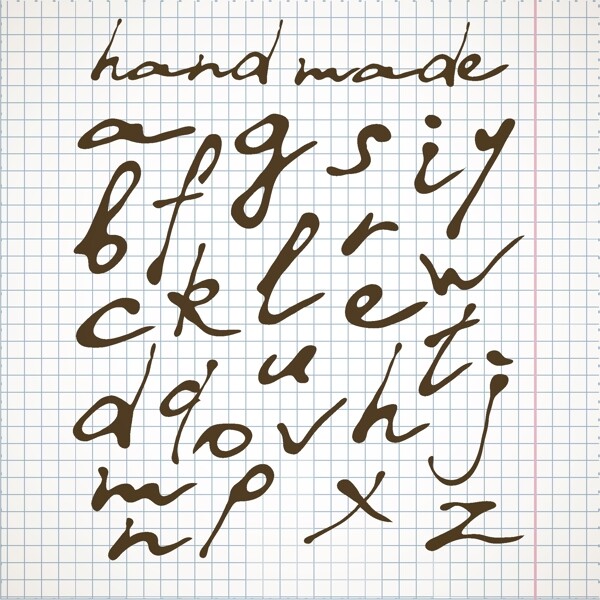 hand made
a g s i y
b f r
c k l e w
d q u h t j
o v
m p x z
n